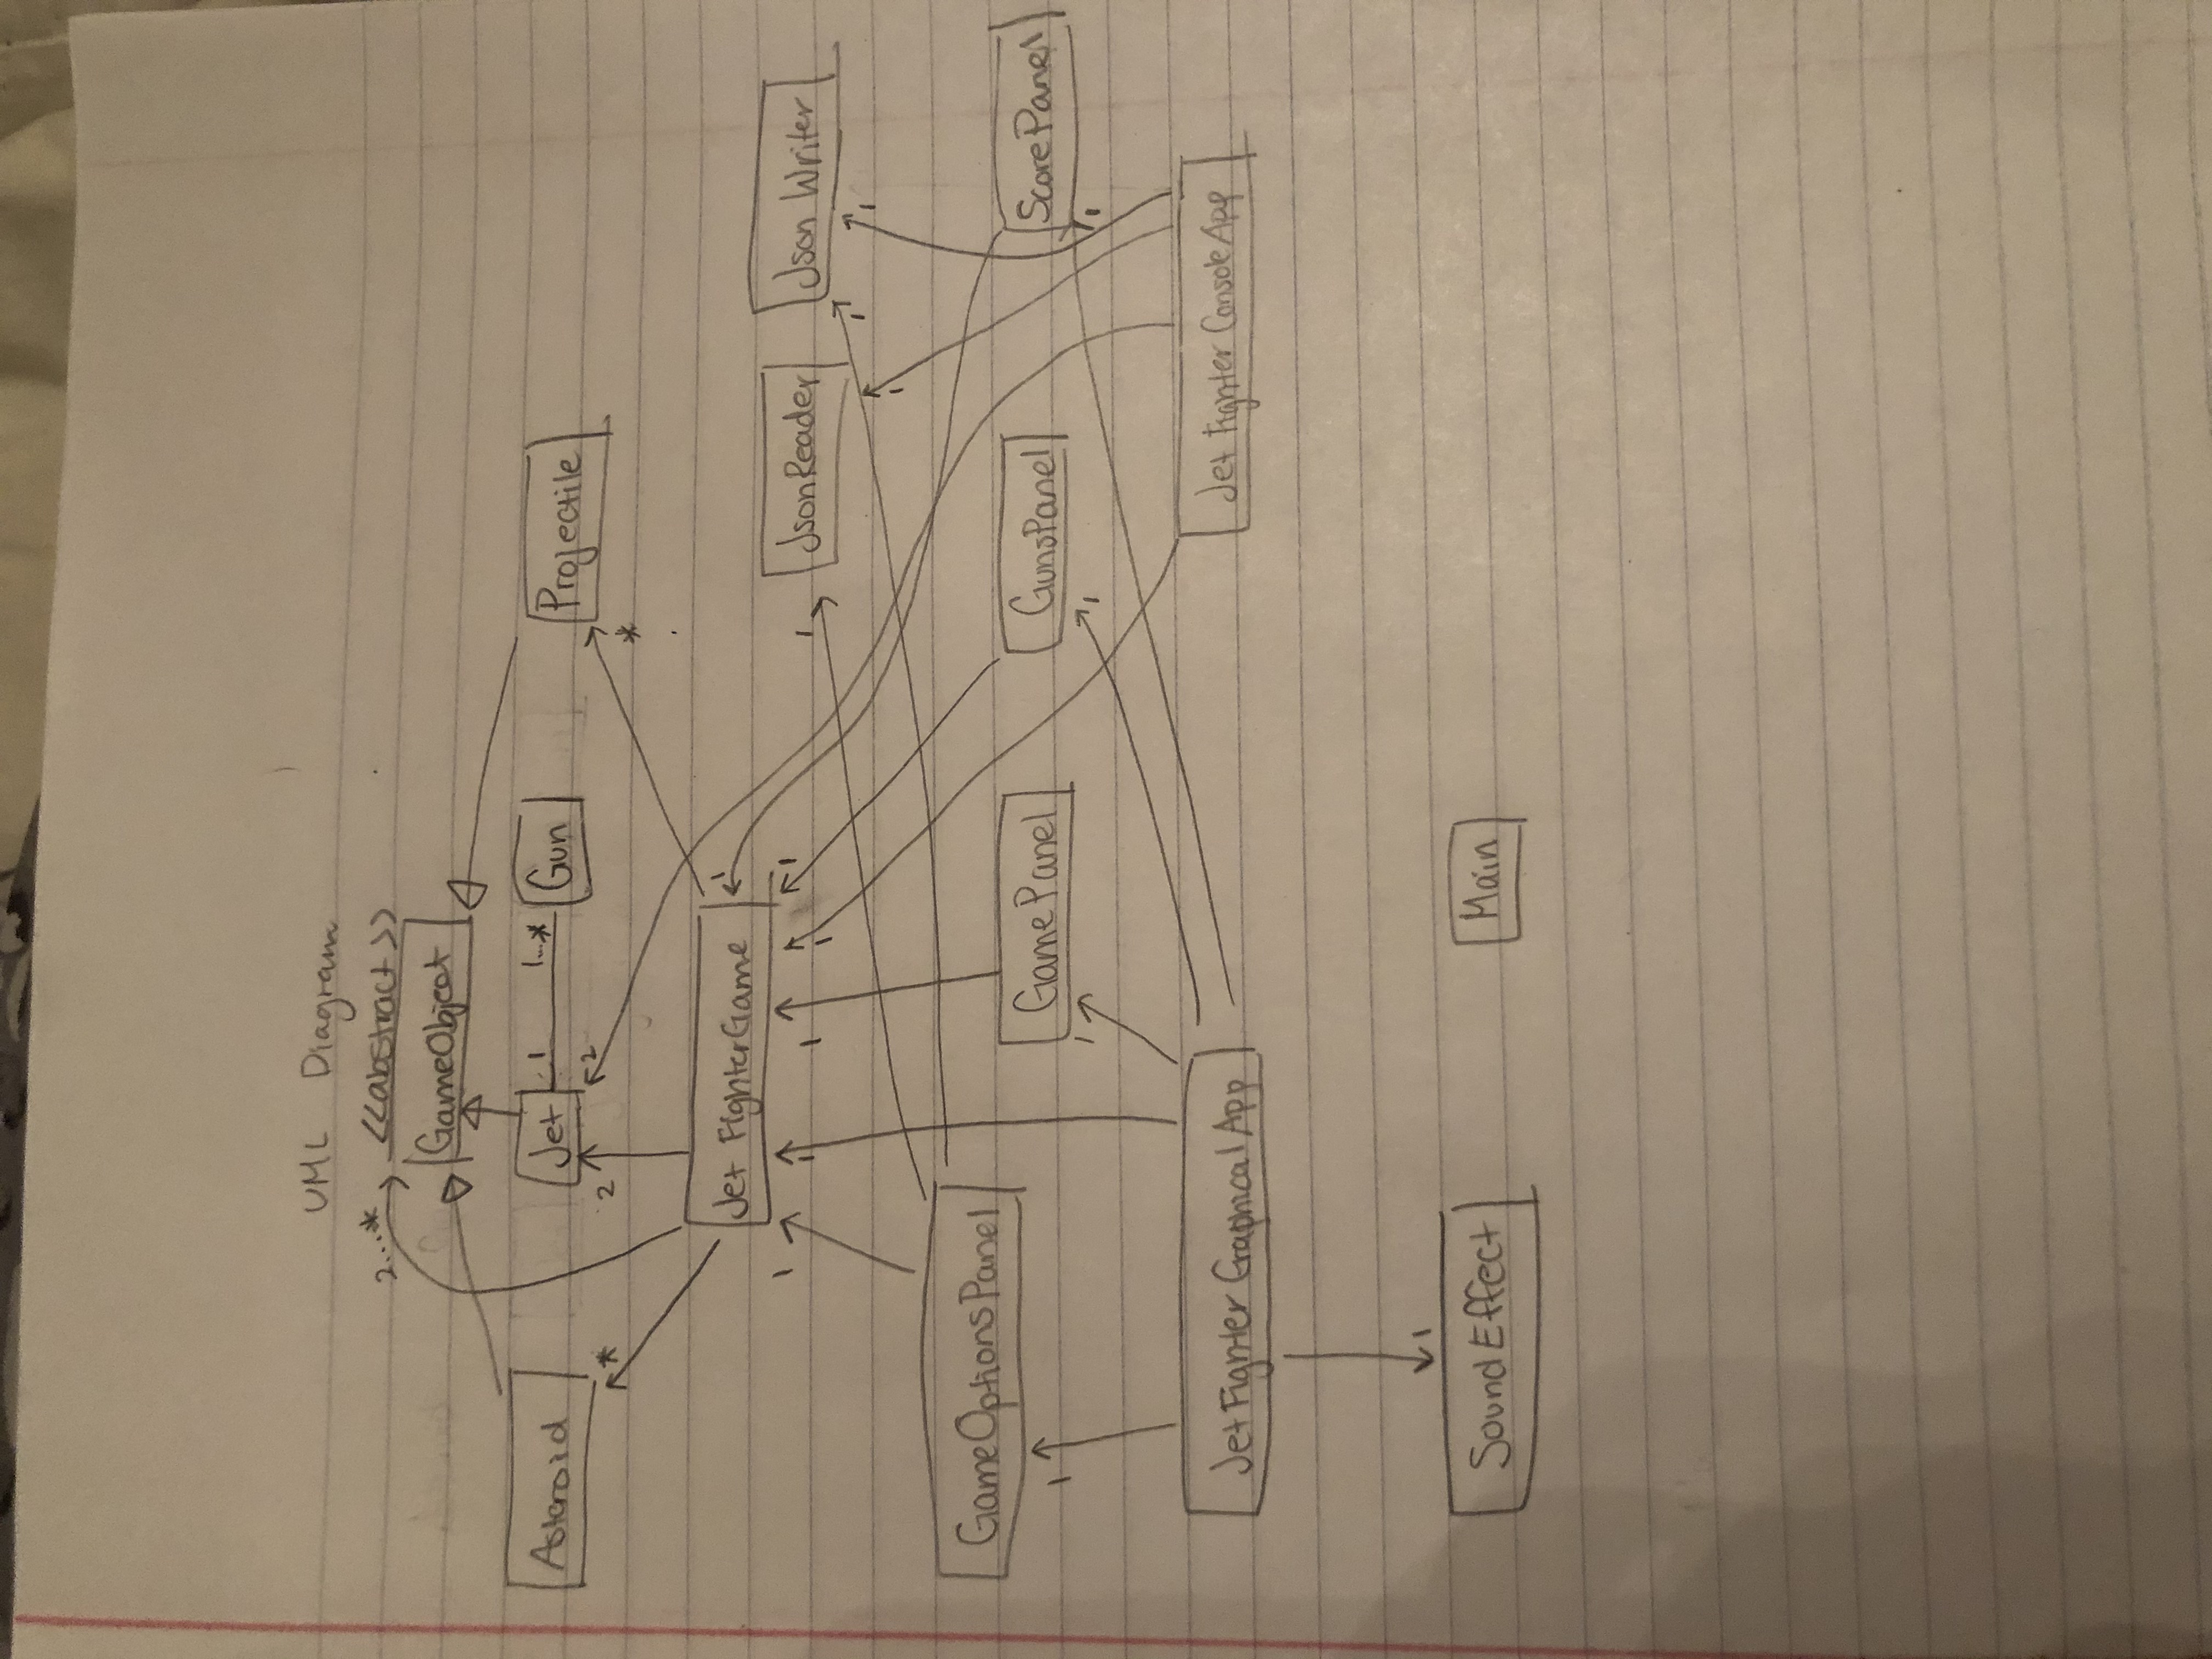 UML Diagram
2...* <<abstract>>
GameObject
Asteroid Jet 1 1...* Gun Projectile
* 2 2 *
Jet FighterGame 1
1 1 1 1 1
1 JsonReader Json Writer
1 1 1
GameOptionsPanel
GamePanel GunsPanel ScorePanel
1 1 1 1
JetFighter GraphicalApp Jet Fighter ConsoleApp
1
SoundEffect Main